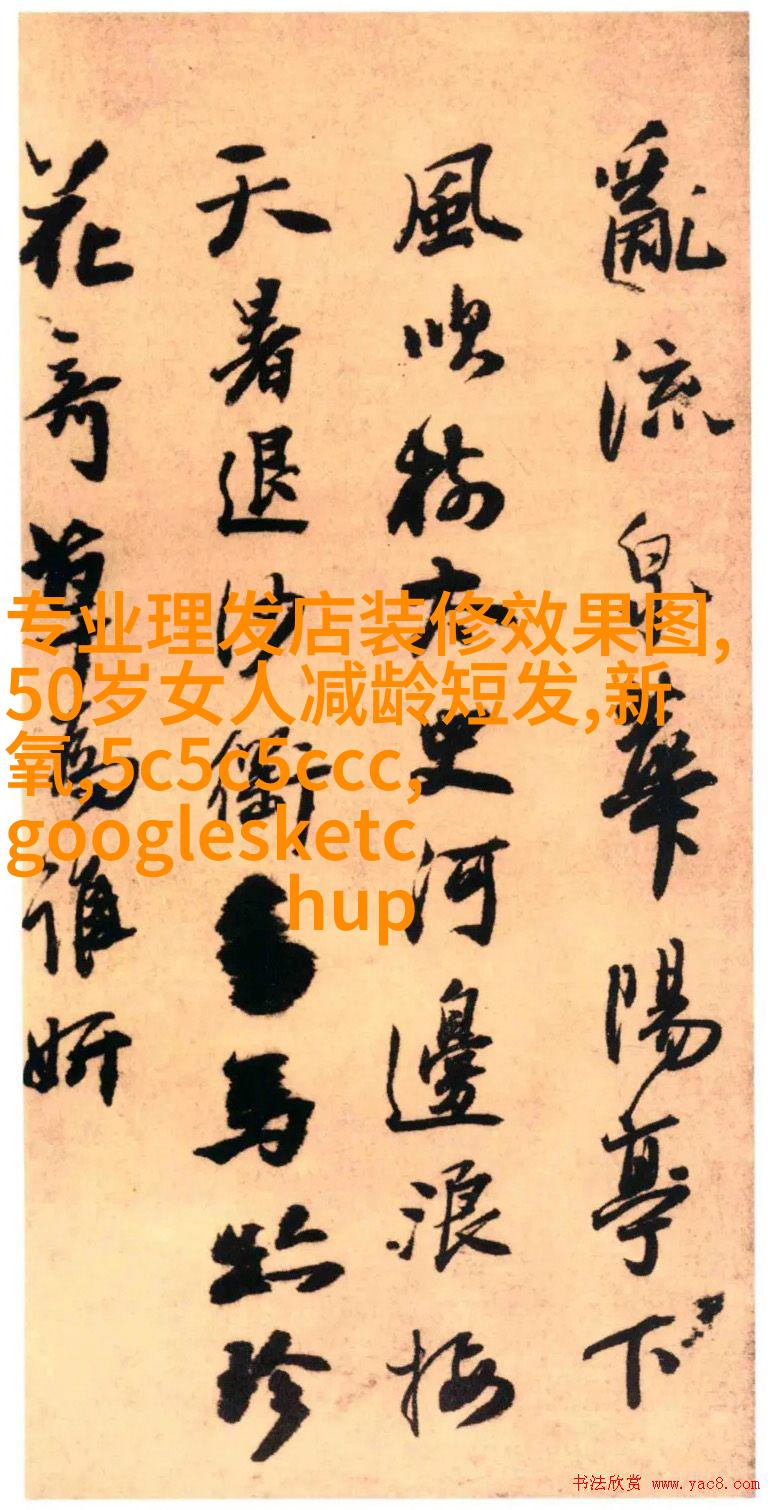 亂流泉華陽亭下
風吹樹太史河邊浪接
天暑退沙衛馬跡珍
花奇草為誰妍
专业理发店装修效果图,
50岁女人减龄短发,新
氧,5c5c5ccc,
googlesketc
hup
书法欣赏 www.yac8.com